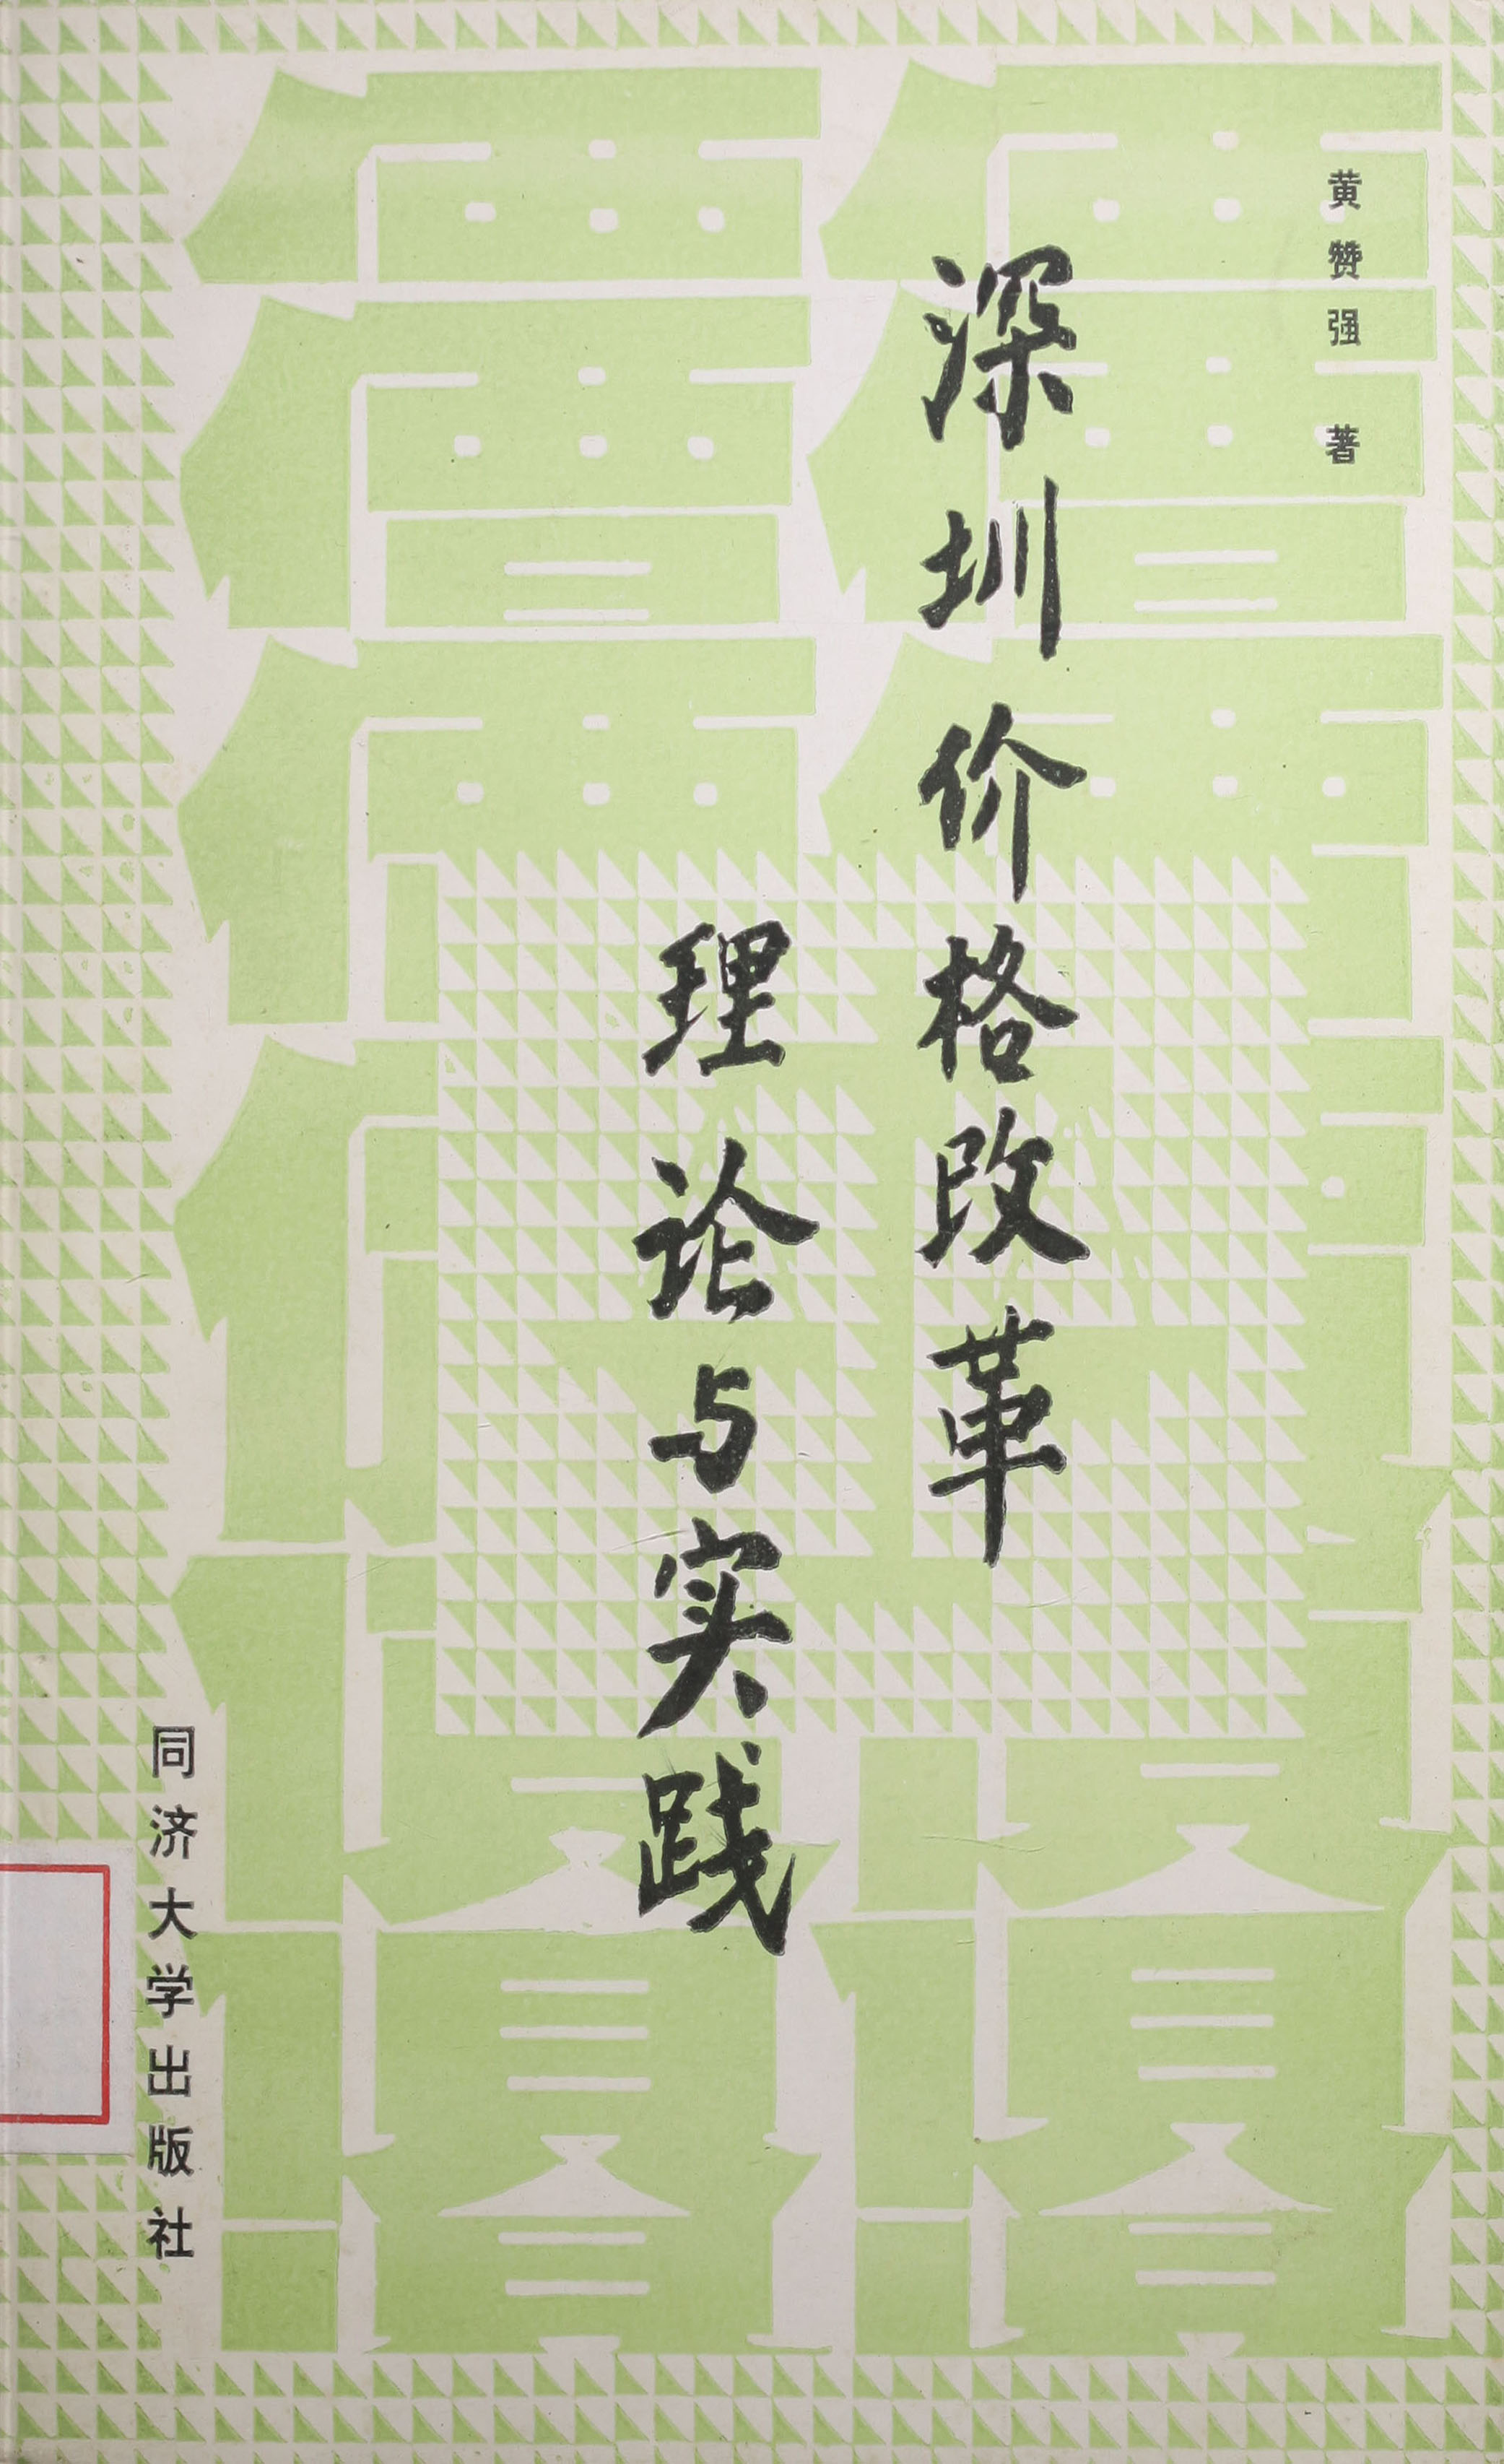 黄赞强 著
深圳价格改革
理论与实践
同济大学出版社